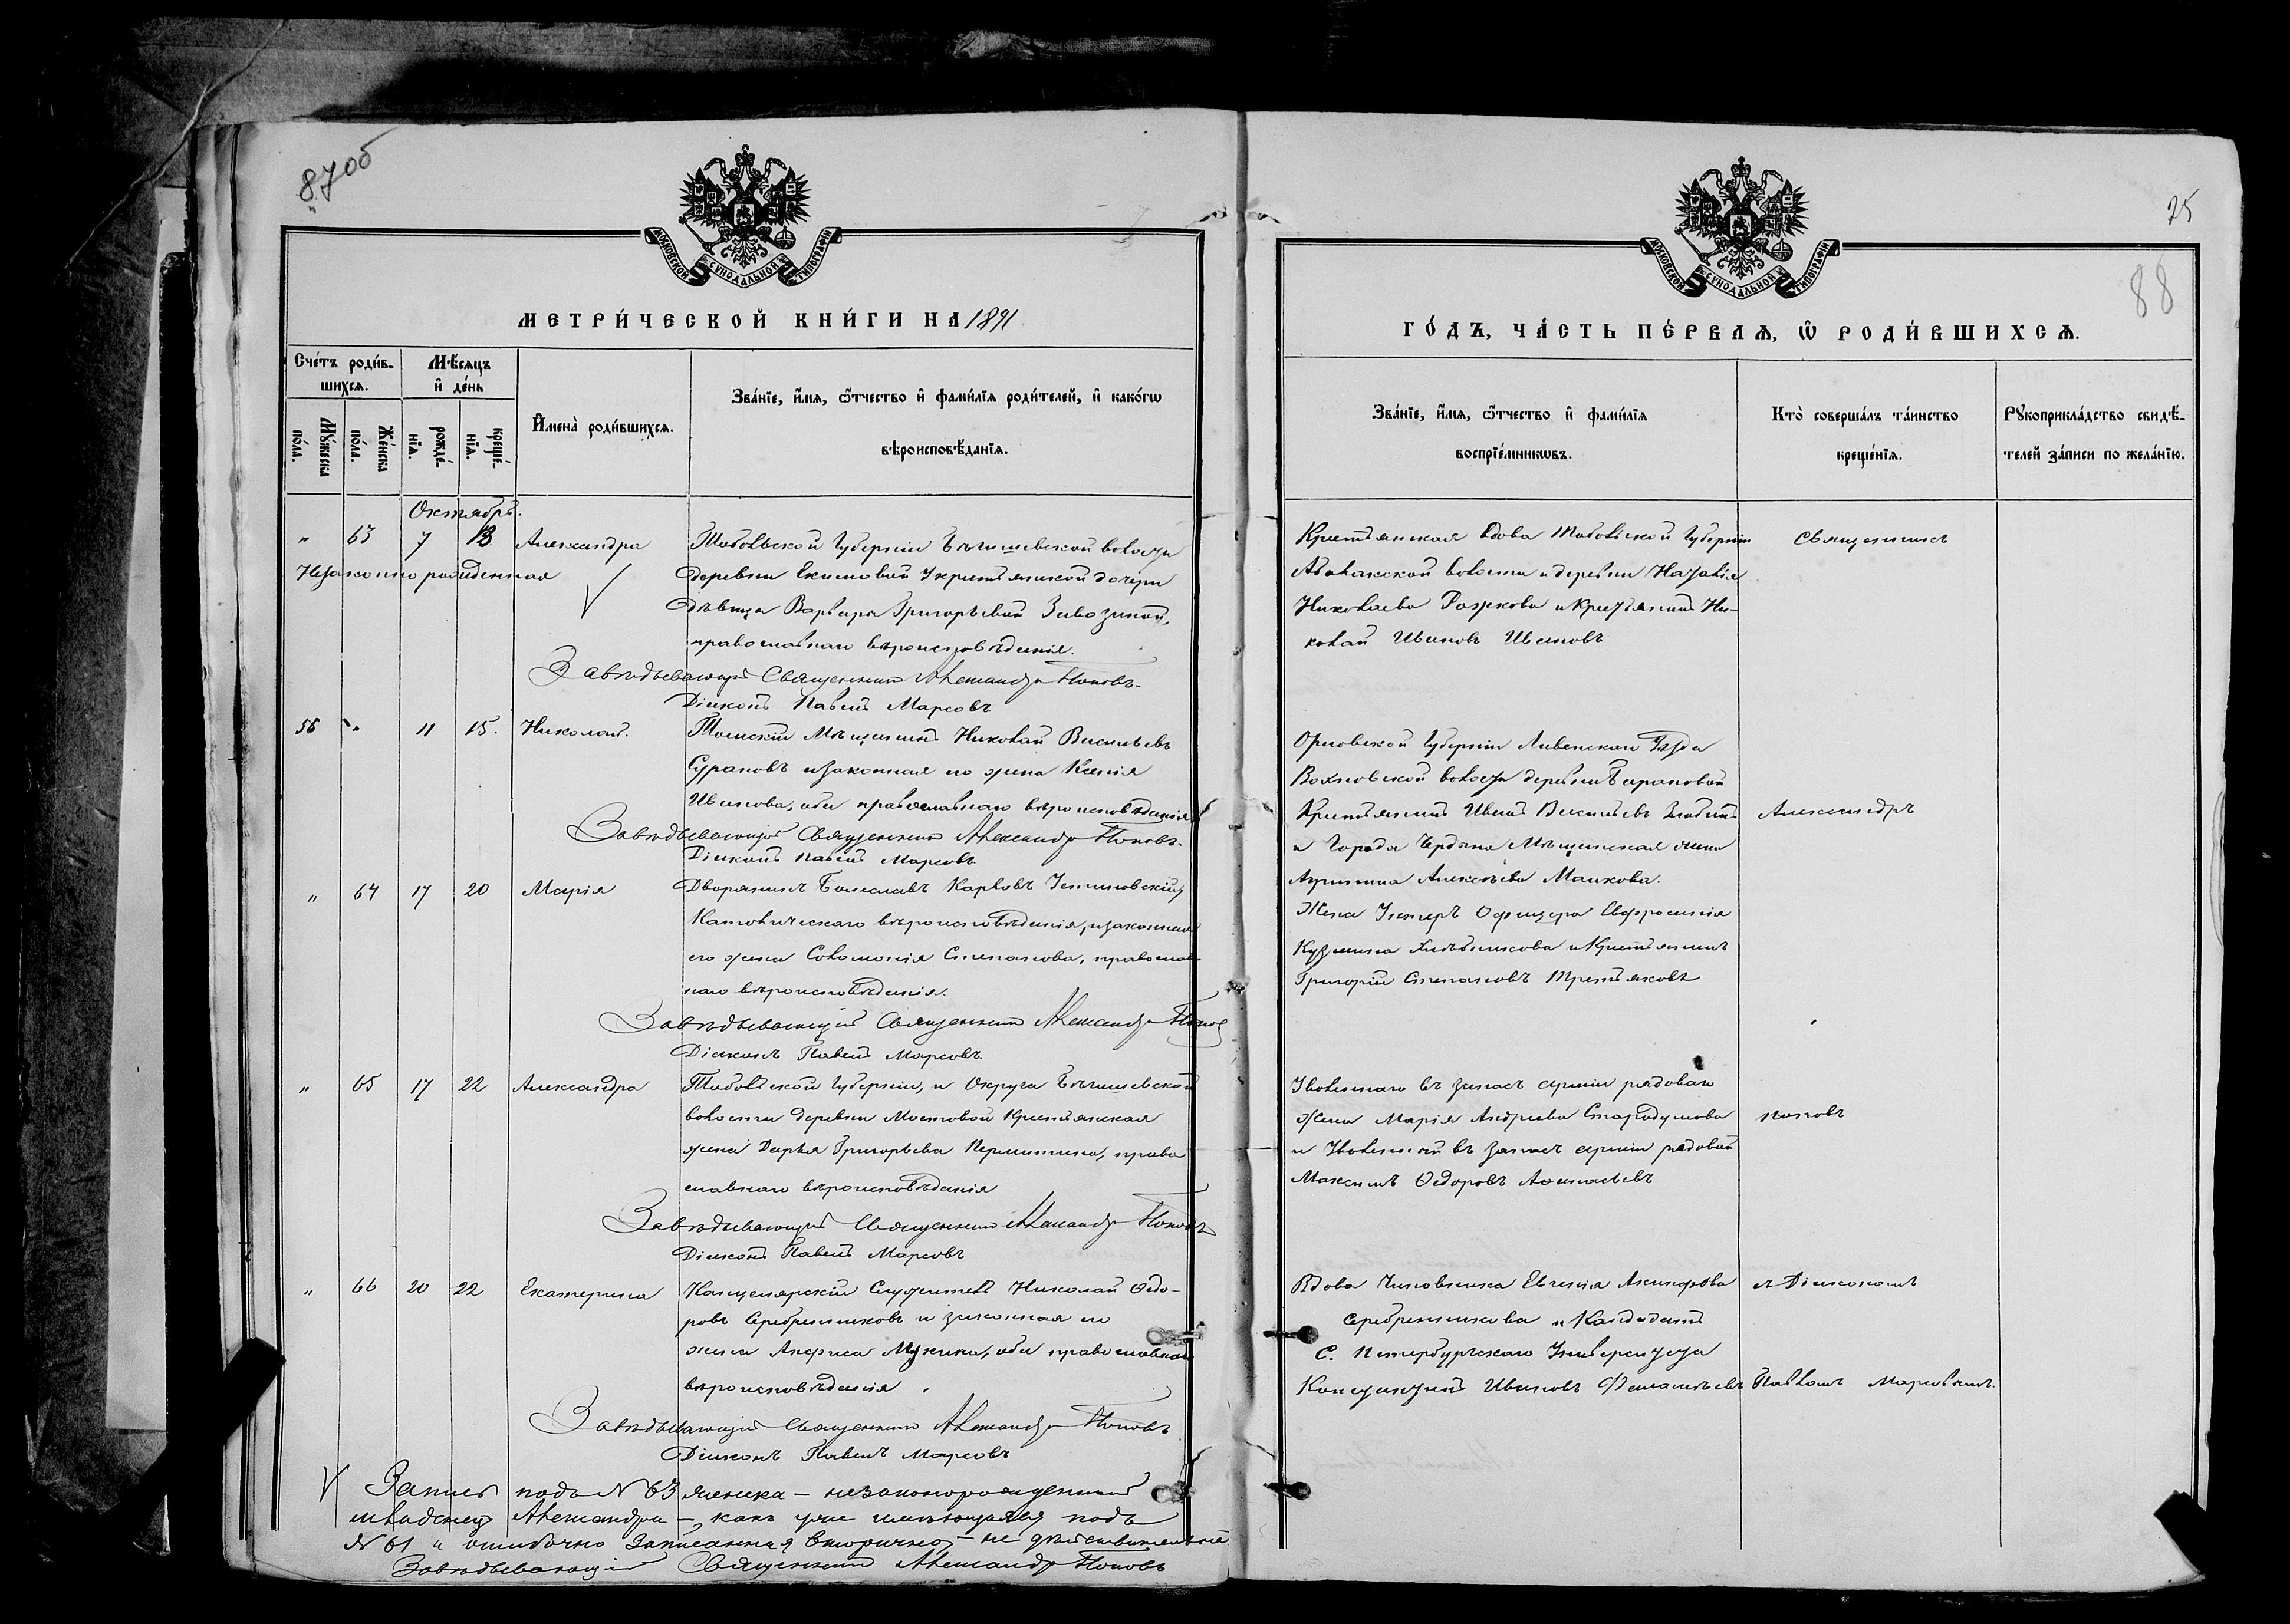 87об
МОСКОВСКОЙ СУНОДАЛЬНОЙ ТИПОГРАФІИ
МЕТРИ́ЧЕСКОЙ КНИ́ГИ НА 1891
Сче́тъ роди́в-
шихсѧ.
Мѣ́сѧцъ
и҆ де́нь
И҆мена̀ роди́вшихсѧ.
Зва́нїе, и҆́мѧ, ѻ҆́тчество и҆ фами́лїѧ роди́телей, и҆ како́гѡ
вѣроисповѣ́данїѧ.
Мꙋ́жеска
по́ла.
Же́нска
по́ла.
рожде́-
нїѧ.
креще́-
нїѧ.
Октябрь.
" 63 7 13 Александра Тобольской Губерніи волости
Незаконно рожденная деревни Екимовой Крестьянской дочери
дѣвицы Варвары Григорьевой
православнаго вѣроисповѣданія.
Завѣдывающій Священникъ Александръ Поповъ.
Діаконъ Павелъ Марсовъ
56 " 11 15. Николай. Томскій Мѣщанинъ Николай Васильевъ
Сурановъ и законная его жена Ксенія
Иванова, оба православнаго вѣроисповѣданія
Завѣдывающій Священникъ Александръ Поповъ.
Діаконъ Павелъ Марсовъ
" 64 17 20 Марія Дворянинъ Болеславъ Карловъ
Католическаго вѣроисповѣданія, и законная
его жена Соломонія Степанова, православ-
наго вѣроисповѣданія.
Завѣдывающій Священникъ Александръ Поповъ
Діаконъ Павелъ Марсовъ
" 65 17 22 Александра Тобольской Губерніи, и Округа
волости деревни Мостовой Крестьянская
жена Дарья Григорьева право
славнаго вѣроисповѣданія
Завѣдывающій Священникъ Александръ Поповъ
Діаконъ Павелъ Марсовъ
" 66 20 22 Екатерина Канцелярскій Служитель Николай Ѳедо-
ровъ Серебренниковъ и законная его
жена оба православнаго
вѣроисповѣданія.
Завѣдывающій Священникъ Александръ Поповъ
Діаконъ Павелъ Марсовъ
V Запись подъ N 63 женска – незаконорожденный
младенец Александра – какъ уже имѣющаяся подъ
N 61 и ошибочно записанная вторично – не дѣйствительна
Завѣдывающій Священникъ Александръ Поповъ
25
88
МОСКОВСКОЙ СУНОДАЛЬНОЙ ТИПОГРАФІИ
ГО́ДЪ, ЧА́СТЬ ПЕ́РВАѦ, Ѡ҆ РОДИ́ВШИХСѦ.
Зва́нїе, и҆́мѧ, ѻ҆́тчество и҆ фами́лїѧ
воспрїе́мникѡвъ.
Кто̀ соверша́лъ та́инство
креще́нїѧ.
Рꙋкоприкла́дство свидѣ́-
телей за́писи по жела́нїю.
Крестьянская вдова Тобольской Губерніи Священникъ
Абалакской волости и деревни Наталія
Николаева Рожкова и крестьянинъ Ни-
колай Ивановъ Ивановъ
Орловской Губерніи Ливенскаго Уѣзда
волости деревни Барановой
Крестьянинъ Иванъ Васильевъ Александръ
и Города Чердына Мѣщанская жена
Агрипина Алексѣева Малкова.
Жена Унтеръ Офицера Евфросинія
Кузмина Хлѣбникова и Крестьянинъ
Григорій Степановъ Третьяковъ
Уволеннаго въ запасъ арміи рядоваго
жена Марія Андреева Стародумова поповъ
и Уволенный въ запасъ арміи рядовой
Максимъ Ѳедоровъ Аѳанасьевъ
Вдова Чиновника Евгенія Акинфова съ Діакономъ
Серебренникова и Кандидатъ
С. Петербургскаго Университета
Константинъ Ивановъ Павломъ Марсовымъ.